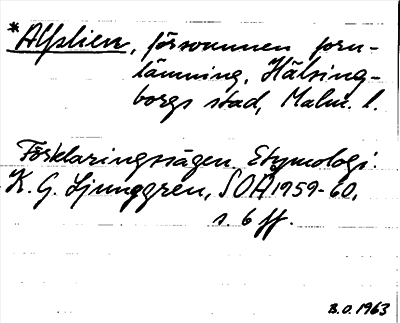 *Alfslien, försvunnen forn-
lämning, Hälsing-
borgs stad, Malm. l.
Förklaringssägen. Etymologi:
K. G. Ljunggren, SOÅ 1959-60,
s. 6 ff.
B.O. 1963